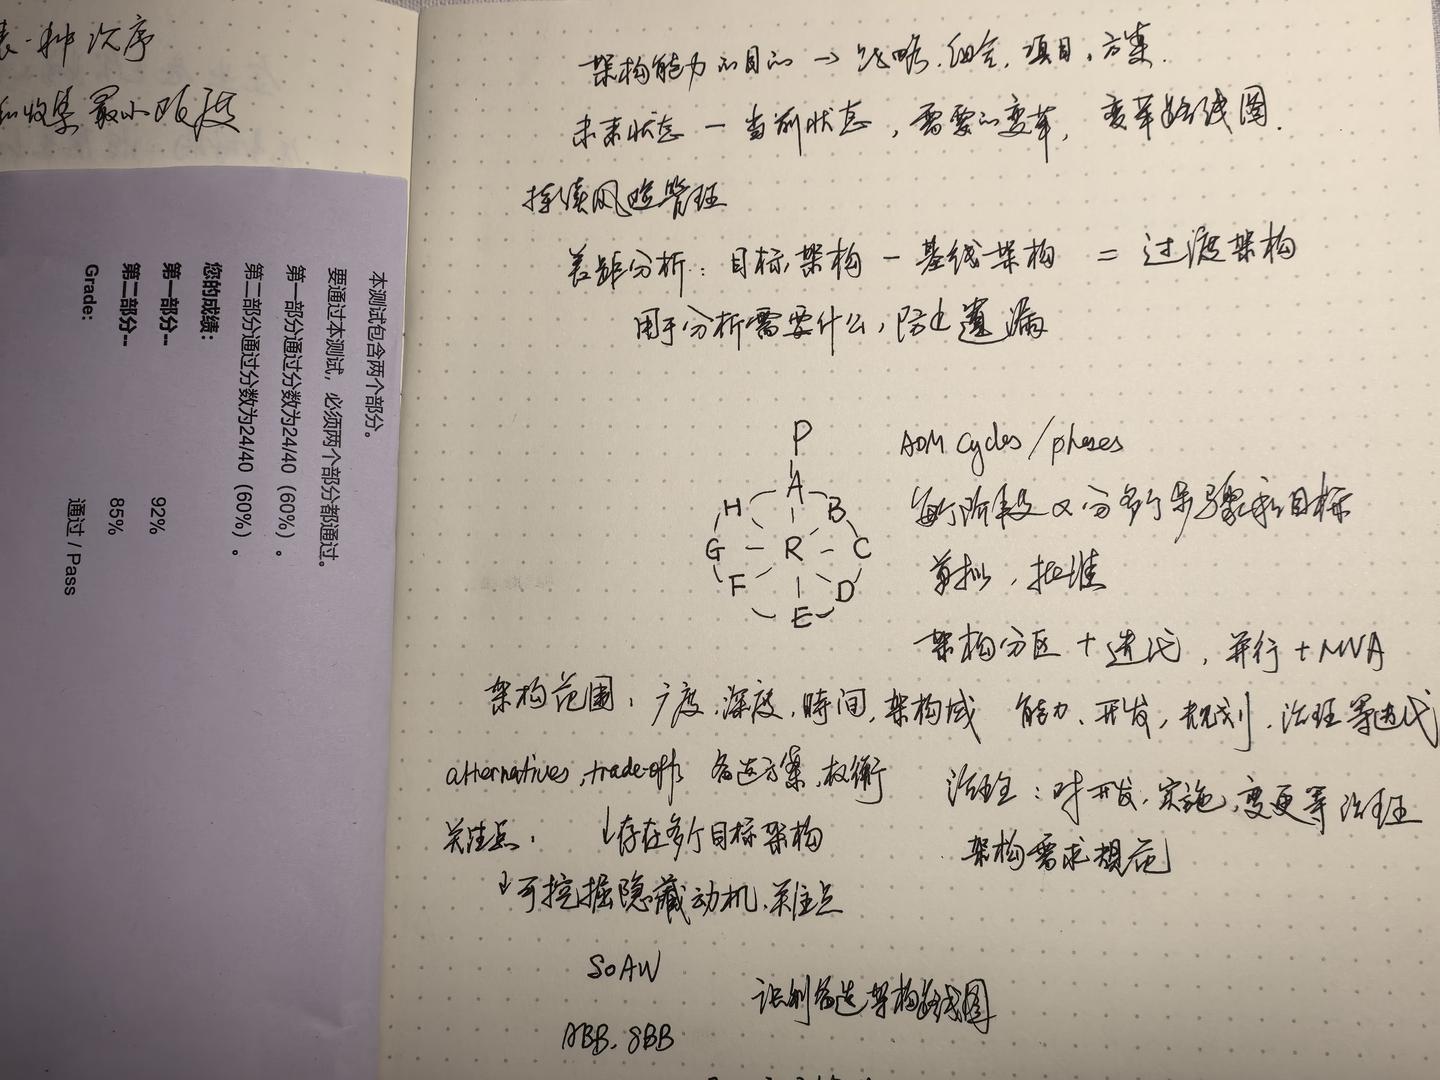 表一种次序
和收集最小
本测试包含两个部分。
要通过本测试，必须两个部分都通过。
第一部分通过分数为24/40（60%）。
第二部分通过分数为24/40（60%）。
您的成绩：
第一部分-- 92%
第二部分-- 85%
Grade: 通过 / Pass
架构能力的目的 → 战略、组合、项目、方案.
未来状态 — 当前状态，需要的变革，变革路线图.
持续风险管理
差距分析：目标架构 - 基线架构 = 过渡架构
用于分析需要什么，防止遗漏
P
A
H B
G R C
F D
E
ADM cycles/phases
每个阶段又分多个步骤和目标
草拟，批准
架构分区 + 迭代，并行 + MVA
架构范围：广度、深度、时间、架构域
能力、开发、规划、治理等迭代
alternatives, trade-offs 备选方案、权衡
治理：对开发、实施、变更等治理
关注点： ↓存在多个目标架构
架构需求规范
↓可挖掘隐藏动机、关注点
SoAW
识别备选架构路线图
ABB、SBB